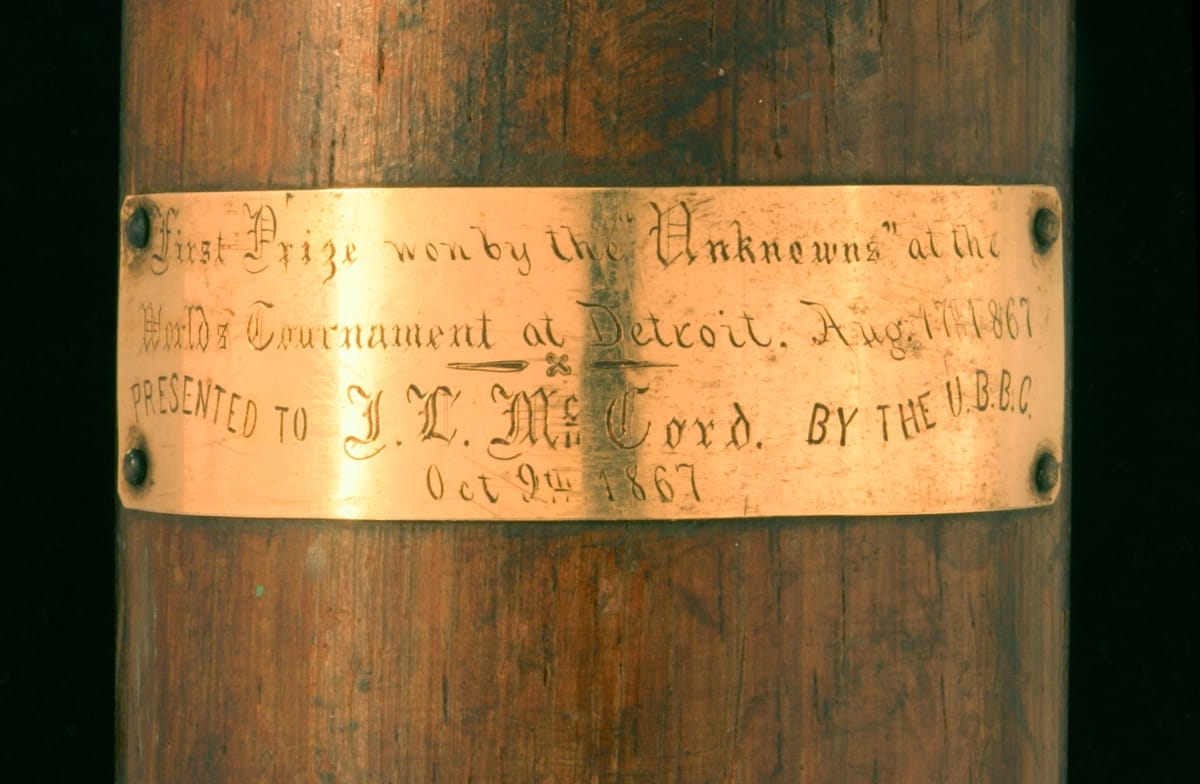 First Prize won by the "Unknowns" at the
World's Tournament at Detroit. Aug. 17th 1867
PRESENTED TO J. L. Mc Cord. BY THE U.B.B.C.
Oct 9th 1867